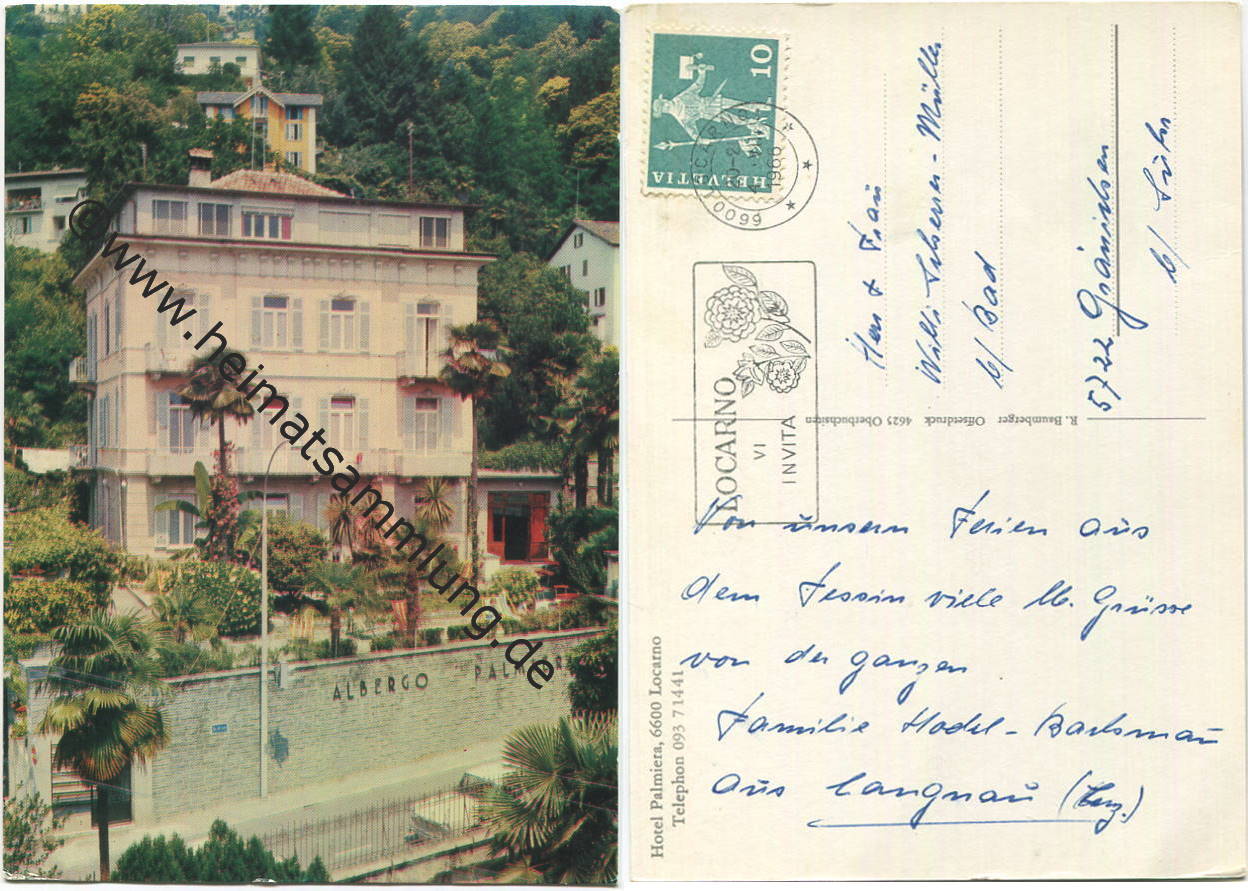 ALBERGO PALMIERA
© www.heimatsammlung.de
HELVETIA 10
6600 LOCARNO
1968
LOCARNO
VI
INVITA
Herr & Frau
b/ Bad
5722 Gränichen
b/ Suhr
R. Baumberger Offsetdruck 4625 Oberbuchsiten
Hotel Palmiera, 6600 Locarno
Telephon 093 71441
Von unsern Ferien aus
dem Tessin viele lb. Grüsse
von der ganzen
Familie Hodel -
aus Langnau